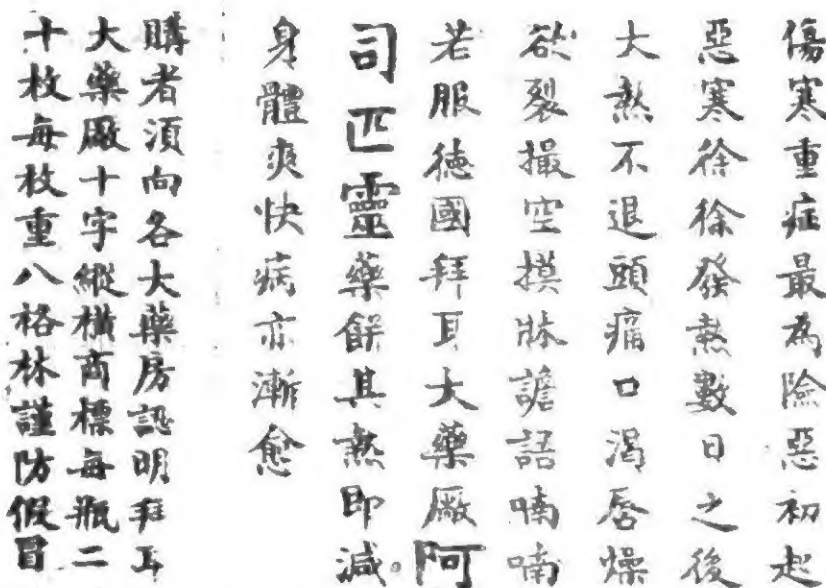 傷寒重症最為險惡初起
惡寒徐徐發熱數日之後
大熱不退頭痛口渴唇燥
欲裂撮空摸牀譫語喃喃
若服德國拜耳大藥廠阿
司匹靈藥餅其熱即減。
身體爽快病亦漸愈
購者須向各大藥房認明拜耳
大藥廠十字縱橫商標每瓶二
十枚每枚重八格林謹防假冒